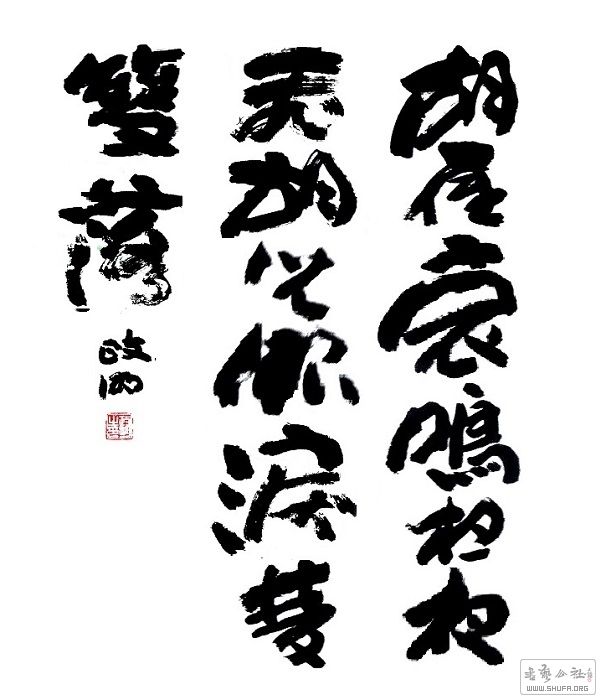 胡雁哀鳴夜夜
飛胡兒眼淚雙
雙落
書藝公社
WWW.SHUFA.ORG